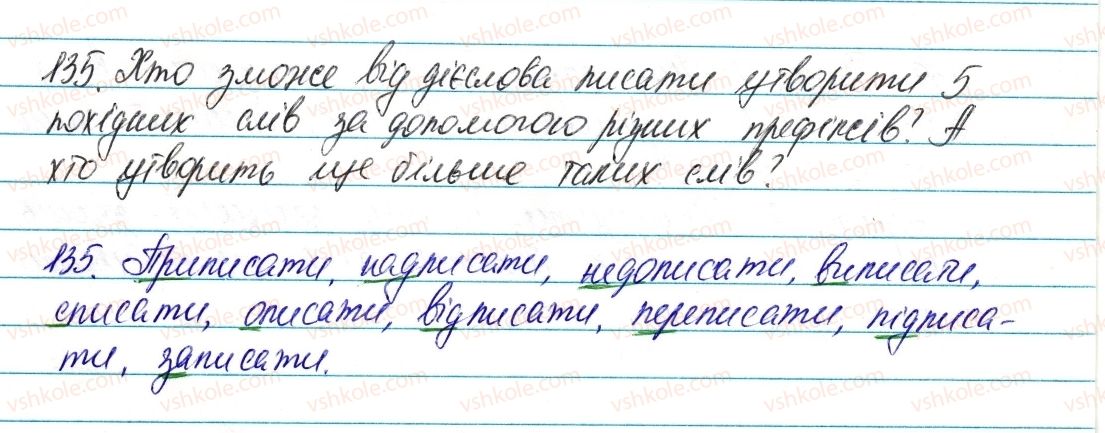 135. Хто зможе від дієслова писати утворити 5
похідних слів за допомогою різних префіксів? А
хто утворить ще більше таких слів?
135. Приписати, надписати, недописати, виписати,
списати, описати, відписати, переписати, підписа-
ти, записати.
vshkole.com